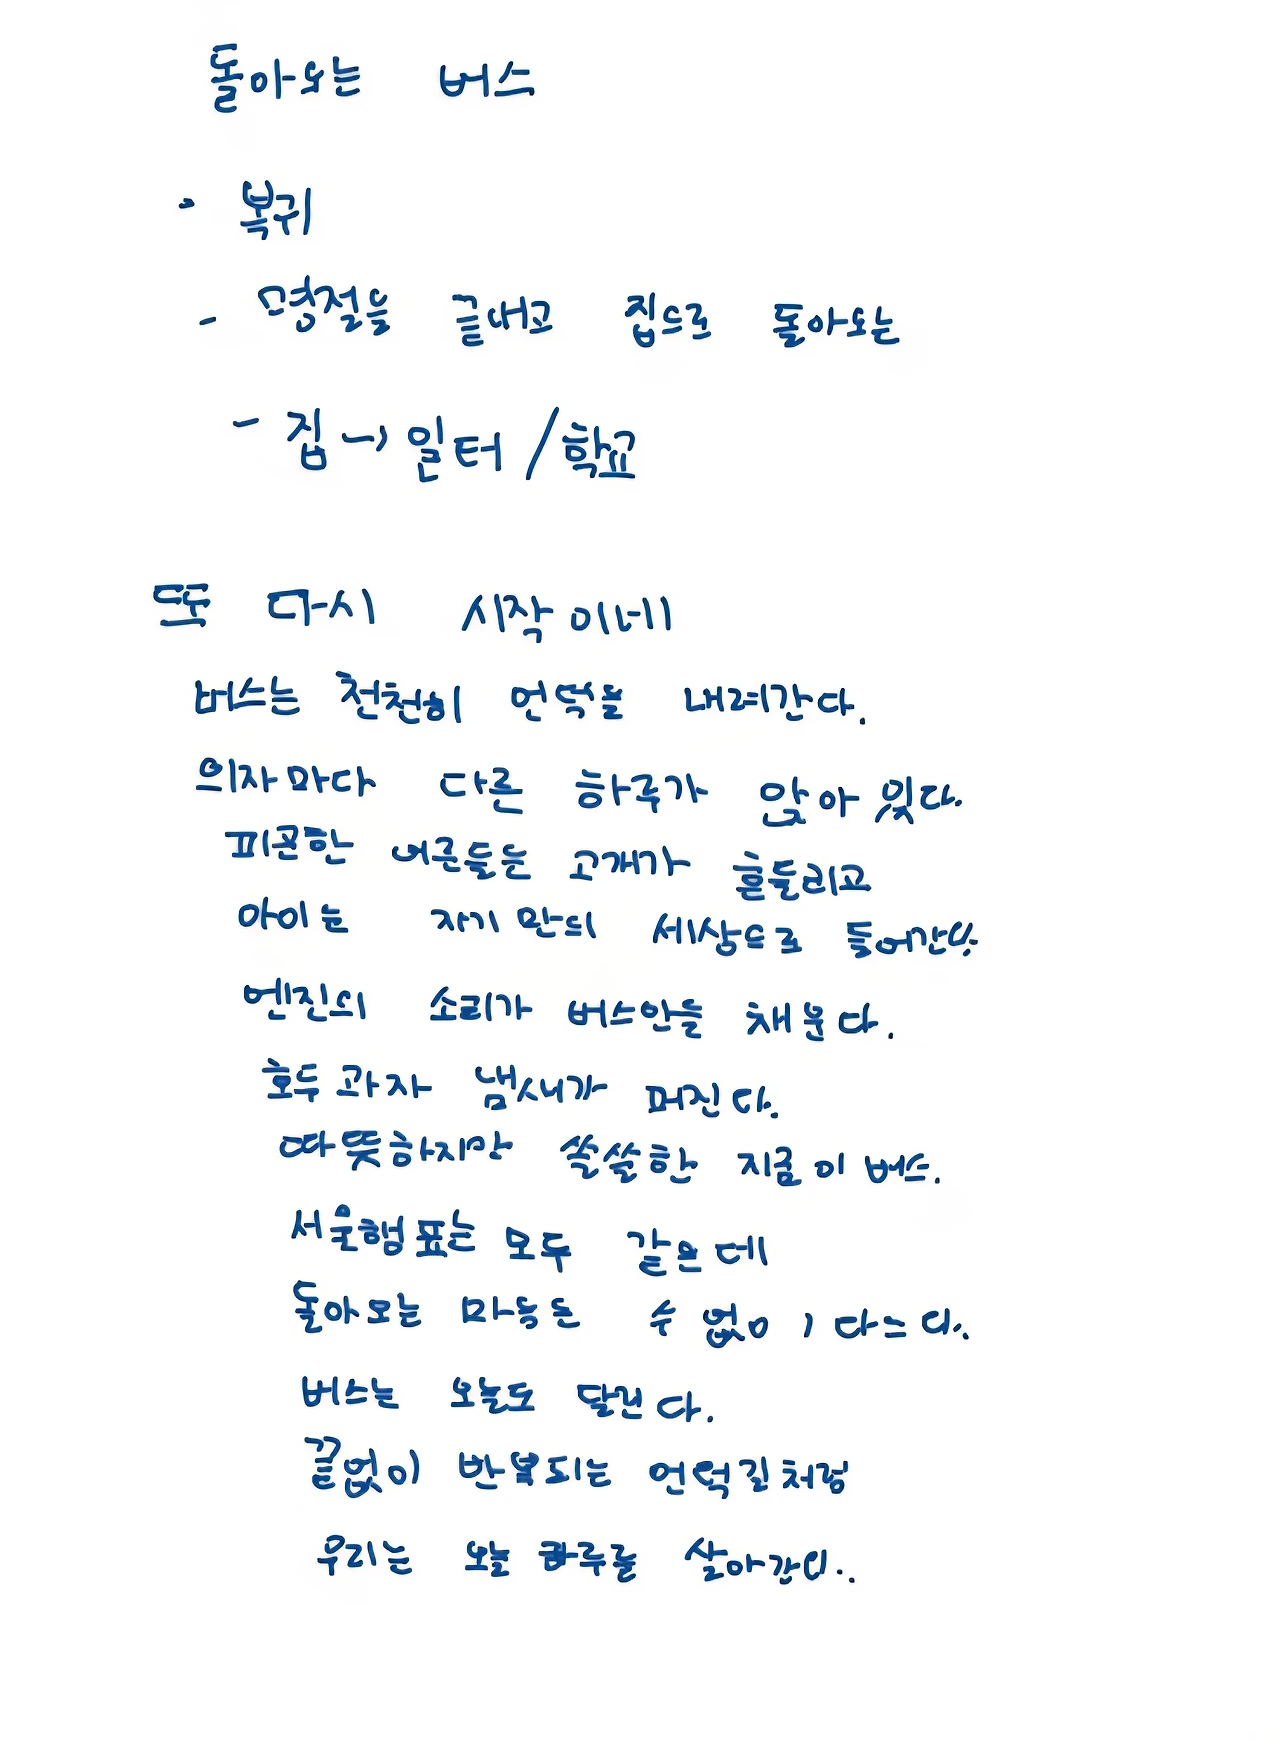 돌아오는 버스
• 복귀
- 명절을 끝내고 집으로 돌아오는
- 집 → 일터 / 학교
또 다시 시작이네
버스는 천천히 언덕을 내려간다.
의자마다 다른 하루가 앉아 있다.
피곤한 어른들은 고개가 흔들리고
아이는 자기만의 세상으로 들어간다.
엔진의 소리가 버스안을 채운다.
호두과자 냄새가 퍼진다.
따뜻하지만 쓸쓸한 지금 이 버스.
서울행 표는 모두 같은데
돌아오는 마음은 수 없이 다르다.
버스는 오늘도 달린다.
끝없이 반복되는 언덕길처럼
우리는 오늘 하루를 살아간다.